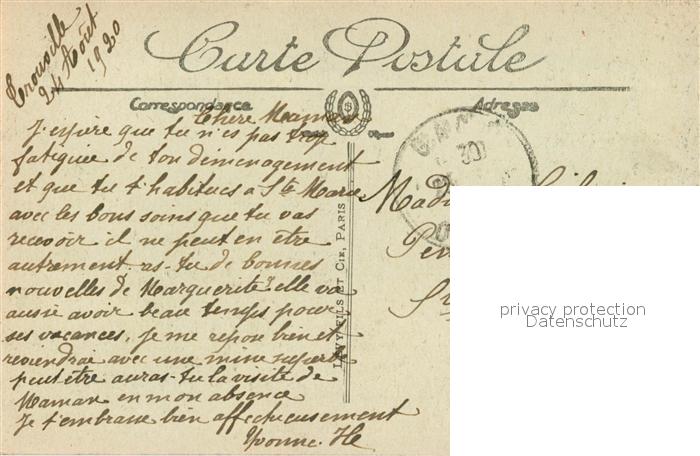 Trouville
24 Août
1920
Carte Postale
Correspondance
Adresse
Chère Maman
J'espère que tu n'es pas trop
fatiguée de ton déménagement
et que tu t'habitues a Ste Marie
avec les bons soins que tu vas
recevoir il ne peut en être
autrement. as-tu de bonnes
nouvelles de Marguerite? elle va
aussi avoir beau temps pour
ses vacances, je me repose bien et
reviendrai avec une mine superbe
peut être auras-tu la visite de
Maman en mon absence
Je t'embrasse bien affectueusement
Yvonne. He
LEVY FILS ET CIE, PARIS
privacy protection
Datenschutz